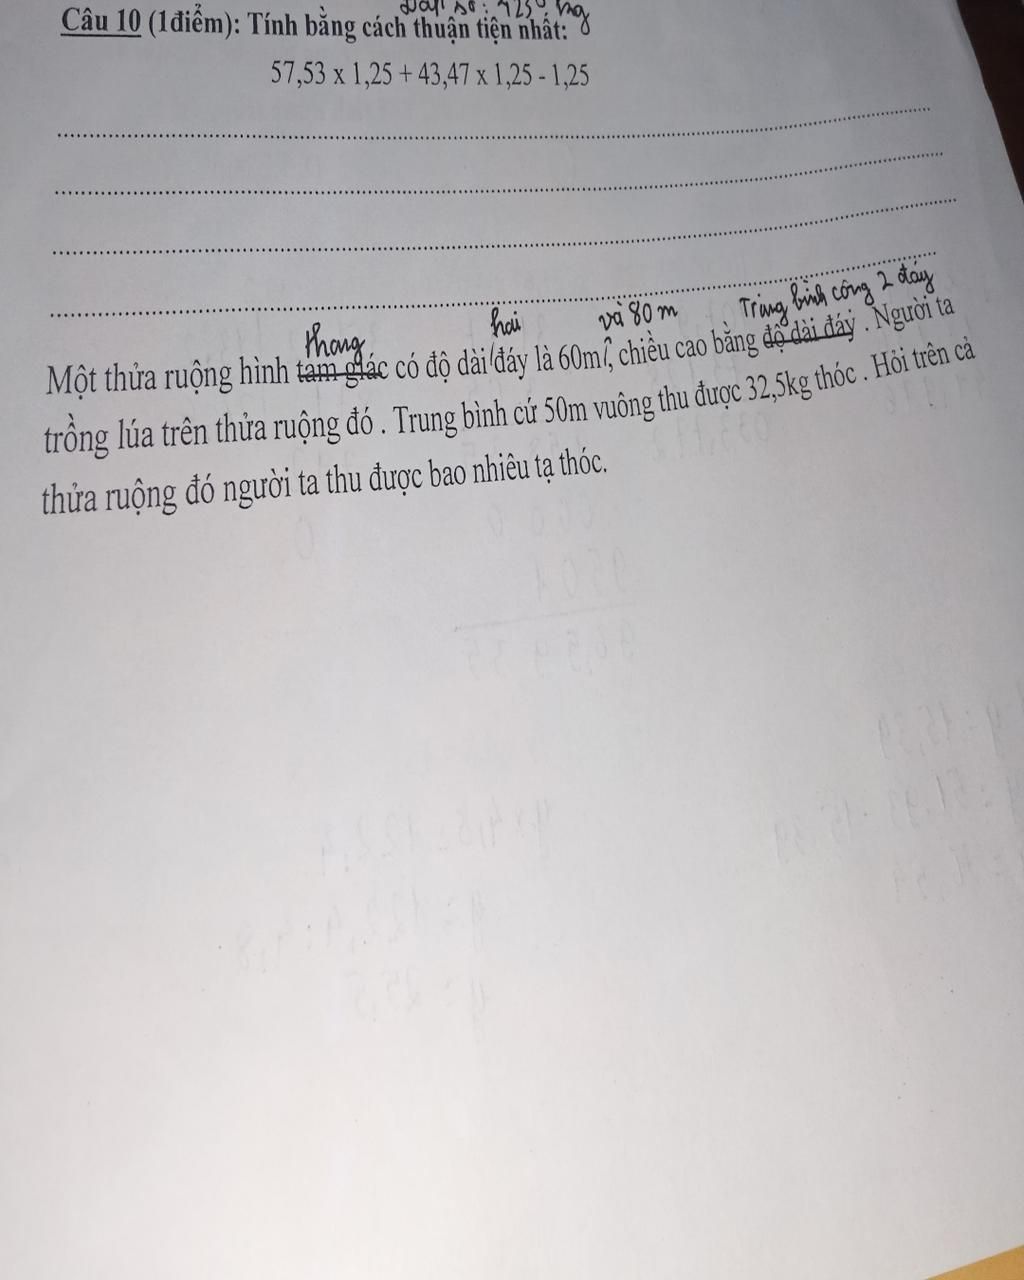 Đáp số: 4250 kg
Câu 10 (1điểm): Tính bằng cách thuận tiện nhất:
57,53 x 1,25 + 43,47 x 1,25 - 1,25
thang hai và 80 m Trung bình cộng 2 đáy
Một thửa ruộng hình tam giác có độ dài đáy là 60m, chiều cao bằng độ dài đáy . Người ta
trồng lúa trên thửa ruộng đó . Trung bình cứ 50m vuông thu được 32,5kg thóc . Hỏi trên cả
thửa ruộng đó người ta thu được bao nhiêu tạ thóc.